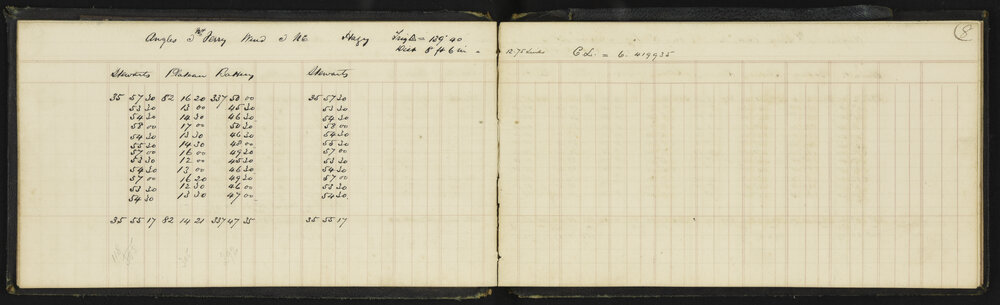 Angles 3rd Ferry Wind 3 NE Hazy Angle = 139° 40
Dist 8 ft 6 in = 12.75 Links C L. = 6. 419935
8
Stewarts Plateau Battery Stewarts
35 57 30 82 16 20 337 50 00 35 57 30
53 30 13 00 45 30 53 30
54 30 14 30 46 30 54 30
58 00 17 00 50 30 58 00
54 30 13 30 46 30 54 30
55 30 14 30 48 00 55 30
57 00 16 00 49 30 57 00
53 30 12 00 45 30 53 30
54 30 13 00 46 30 54 30
57 00 16 30 49 30 57 00
53 30 12 30 46 00 53 30
54 30 13 30 47 00 54 30
35 55 17 82 14 21 337 47 35 35 55 17